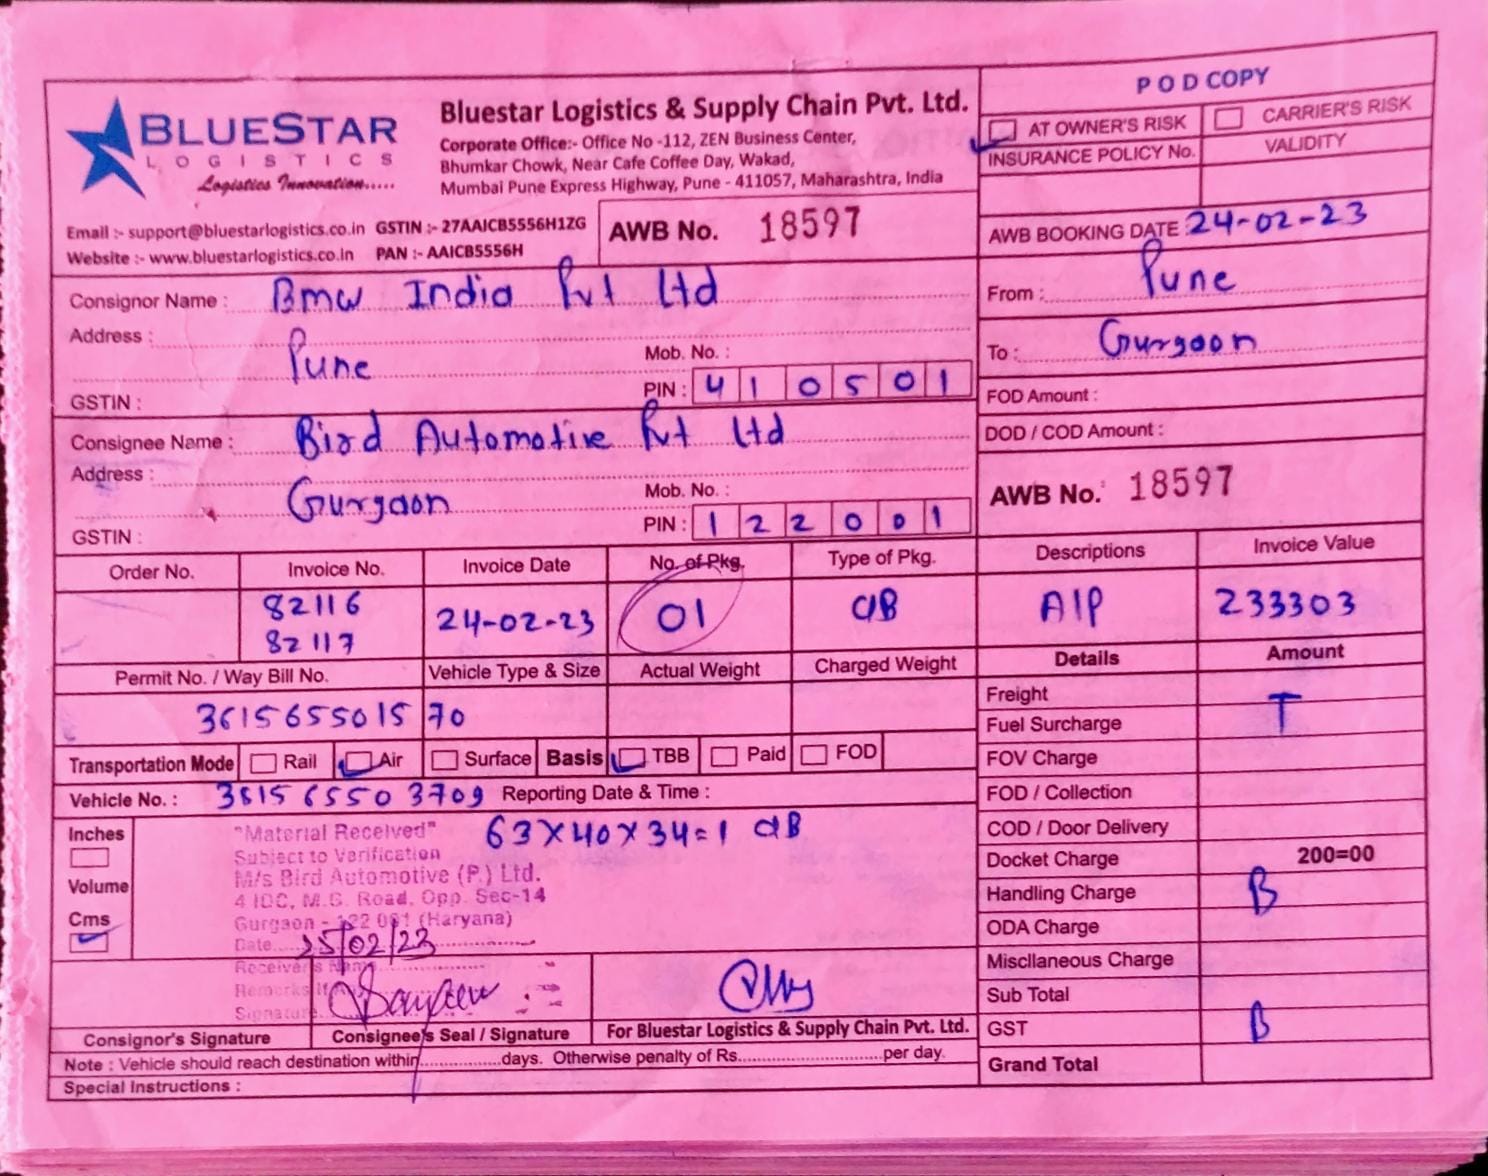 BLUESTAR
LOGISTICS
Logistics Innovation.....
Bluestar Logistics & Supply Chain Pvt. Ltd.
Corporate Office:- Office No -112, ZEN Business Center,
Bhumkar Chowk, Near Cafe Coffee Day, Wakad,
Mumbai Pune Express Highway, Pune - 411057, Maharashtra, India
Email :- support@bluestarlogistics.co.in GSTIN :- 27AAICB5556H1ZG
Website :- www.bluestarlogistics.co.in PAN :- AAICB5556H
AWB No. 18597
POD COPY
AT OWNER'S RISK CARRIER'S RISK
INSURANCE POLICY No. VALIDITY
AWB BOOKING DATE : 24-02-23
Consignor Name : Bmw India Pvt Ltd
Address : Pune
Mob. No. :
PIN : 410501
GSTIN :
From : Pune
To : Gurgaon
FOD Amount :
DOD / COD Amount :
Consignee Name : Bird Automotive Pvt Ltd
Address : Gurgaon
Mob. No. :
PIN : 122001
GSTIN :
AWB No. 18597
Order No. Invoice No. Invoice Date No. of Pkg. Type of Pkg. Descriptions Invoice Value
82116
82117 24-02-23 01 CIB AIP 233303
Permit No. / Way Bill No. Vehicle Type & Size Actual Weight Charged Weight
361565501570
Transportation Mode Rail Air Surface Basis TBB Paid FOD
Vehicle No. : Reporting Date & Time :
Inches
Volume
Cms
63X40X34=1 CIB
"Material Received"
Subject to Verification
M/s Bird Automotive (P.) Ltd.
4 IDC, M.G. Road, Opp. Sec-14
Gurgaon - 122 001 (Haryana)
Date 25/02/23
Receiver's Name
Remarks If Any
Signature
Consignor's Signature Consignee's Seal / Signature For Bluestar Logistics & Supply Chain Pvt. Ltd.
Note : Vehicle should reach destination within..................days. Otherwise penalty of Rs................................per day.
Special Instructions :
Details Amount
Freight
Fuel Surcharge T
FOV Charge
FOD / Collection
COD / Door Delivery
Docket Charge 200=00
Handling Charge B
ODA Charge
Miscllaneous Charge
Sub Total
GST B
Grand Total